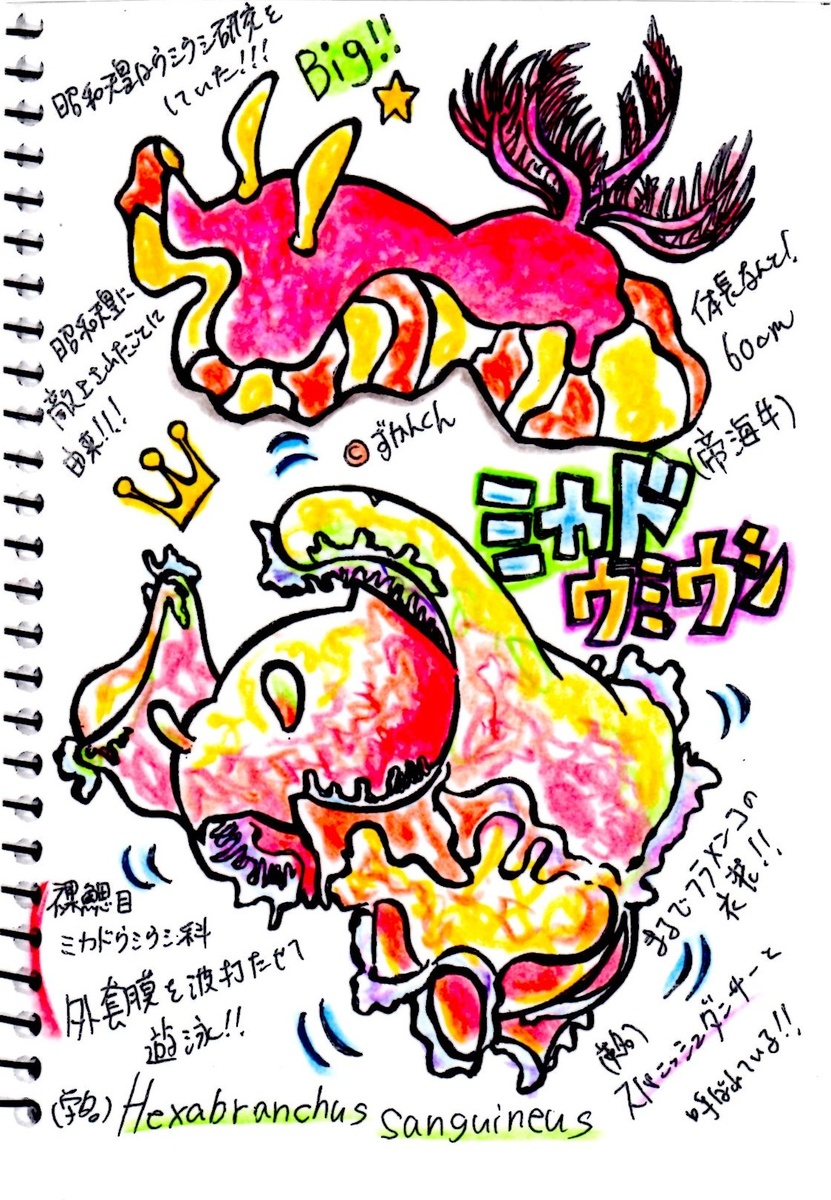 昭和天皇はウミウシ研究を
していた!!!
Big!!
昭和天皇に
献上されたことに
由来!!!
体長なんと!
60cm
(帝海牛)
©ずかんくん
ミカド
ウミウシ
まるでフラメンコの
衣装!!
裸鰓目
ミカドウミウシ科
外套膜を波打たせて
遊泳!!
(英名)
スパニッシュダンサーと
呼ばれている!!
(学名)Hexabranchus sanguineus